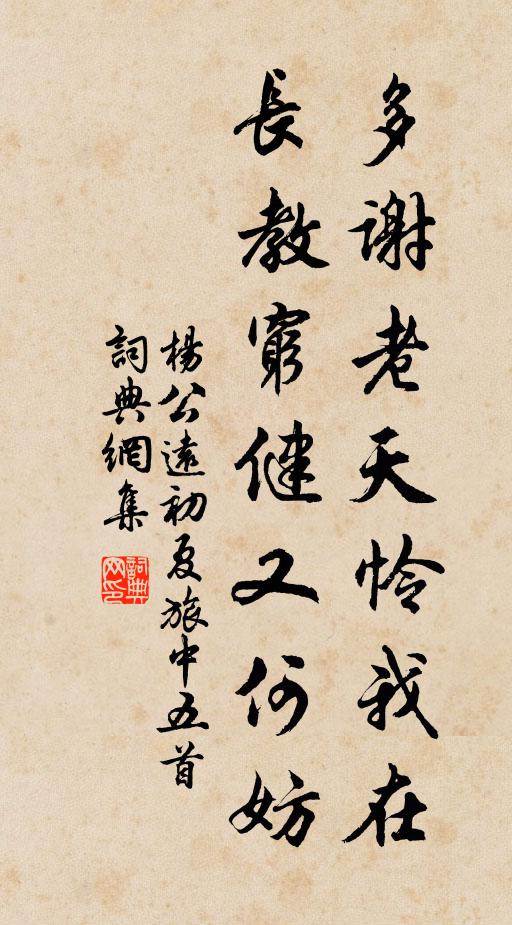 多謝老天怜我在
長教窮健又何妨
楊公遠初夏旅中五首
詞典網集
詞典網印